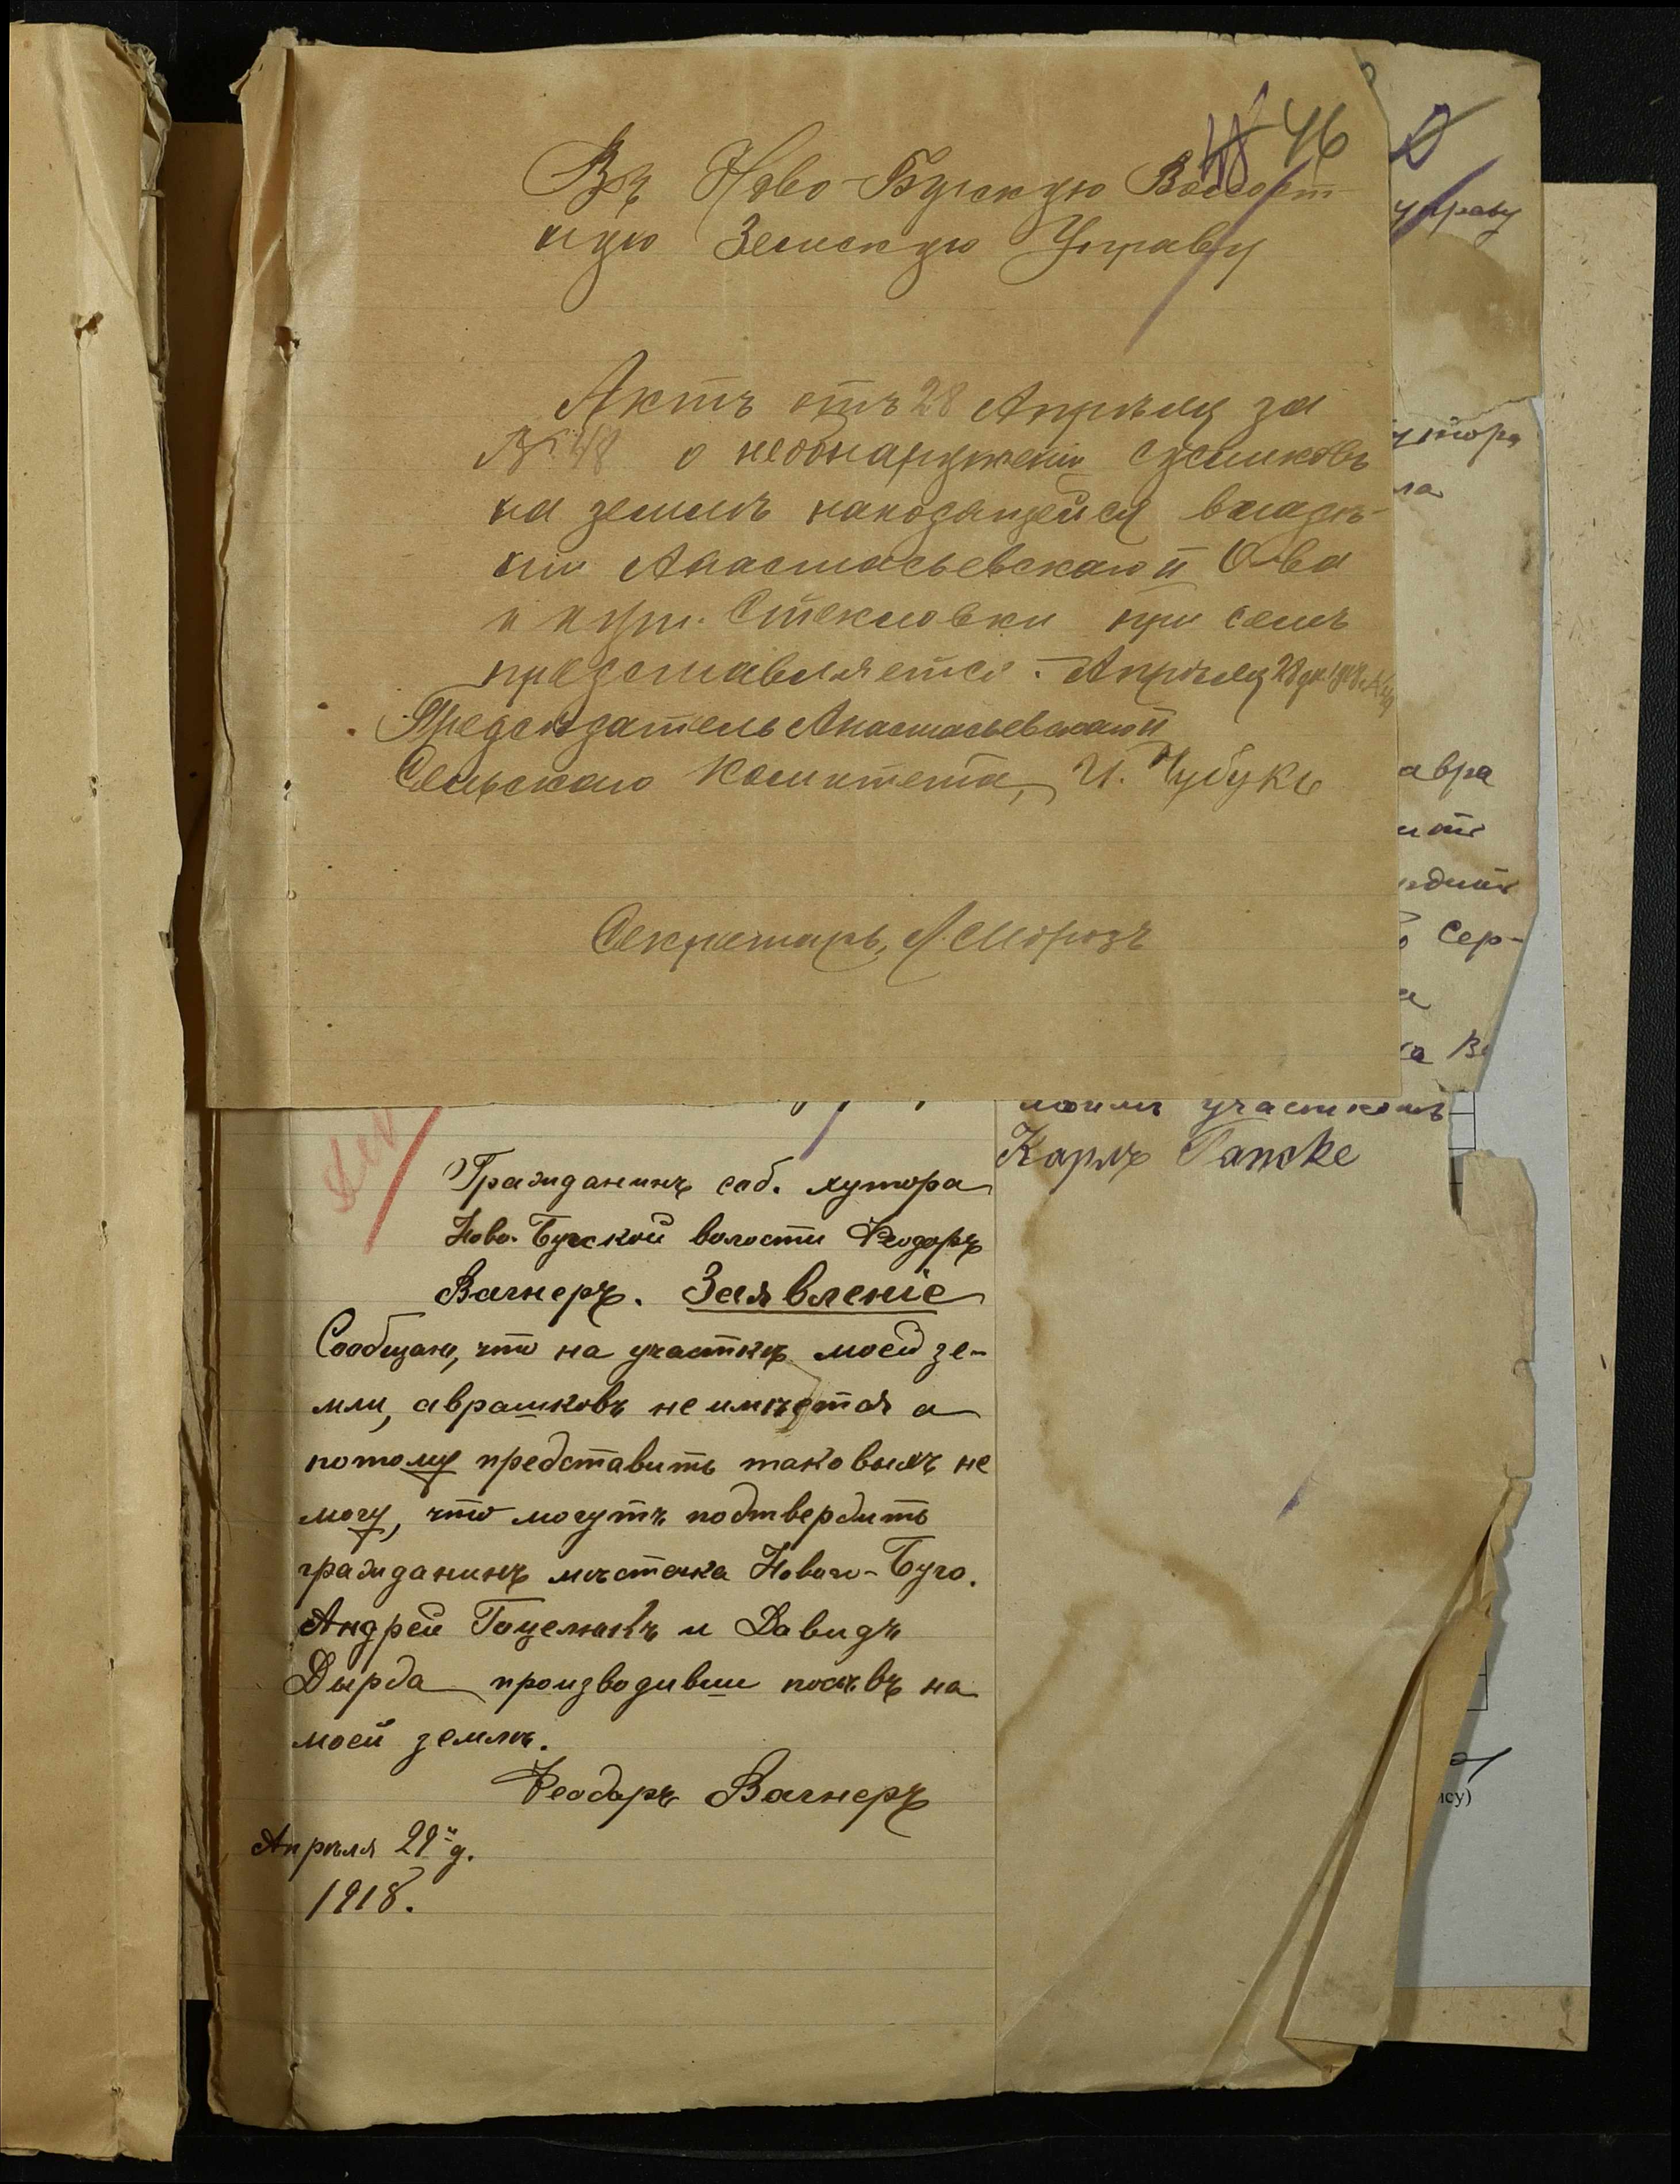 46
Въ Ново-Бугскую Волост-
ную Земскую Управу
Актъ отъ 28 Апрѣля за
№ 48 о необнаруженіи сусликовъ
на землѣ находящейся владѣ-
ніи Анастасьевскаго О-ва
и хут. Стекловки при семъ
представляется. Апрѣля 28 дня 1918
Предсѣдатель Анастасьевскаго
Сельскаго Комитета, И. Чубукъ
Секретарь, А. Морозъ
Гражданинъ соб. хутора
Ново-Бугской волости Феодоръ
Вагнеръ. Заявленіе
Сообщаю, что на участкѣ моей зе-
мли, аврашковъ не имѣется а
потому представить таковыхъ не
могу, что могутъ подтвердить
гражданинъ мѣстечка Новаго-Буга.
Андрей Гоцелюкъ и Давидъ
Дырда производивши посѣвъ на
моей землѣ.
Феодоръ Вагнеръ
Апрѣля 29 д.
1918.
управу
хутора
ла
авра
Сер-
моимъ участкомъ
Карлъ
ису)